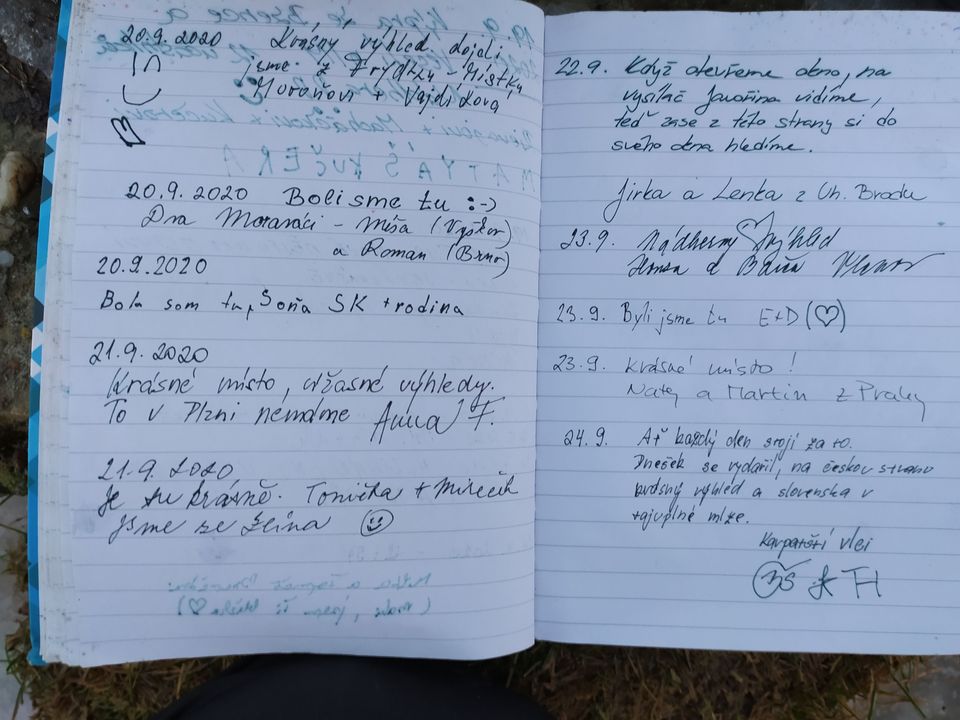 20.9.2020 Krásny výhled dojeli
jsme z Frýdku-Místku
Moroňovi + Vajdíková
20.9.2020 Boli sme tu :-)
Dva Moraváci - Míša (Vyškov)
a Roman (Brno)
20.9.2020
Bola som tu, Soňa SK + rodina
21.9.2020
Krásné místo, úžasné výhledy.
To v Plzni nemáme Anna F.
21.9.2020
Je tu krásně. Tonička + Mireček
jsme ze Zlína
22.9. Když otevřeme okno, na
vysílač Javořina vidíme,
teď zase z této strany si do
svého okna hledíme.
Jirka a Lenka z Uh. Brodu
23.9. Nádherný výhled
Honza a Bára
23.9. Byli jsme tu E+D (♡)
23.9. Krásné místo!
Naty a Martin z Prahy
24.9. Ať každý den stojí za to.
Dnešek se vydařil, na českou stranu
krásný výhled a slovenska v
tajuplné mlze.
Karpatští vlci